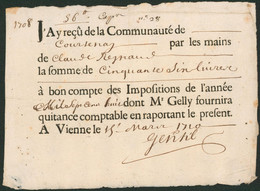 1708
56ᵗᵗ
n° 28
J'Ay reçu de la Communauté de
Courtenay par les mains
de Claude Reynaud
la somme de Cinquante six livres
à bon compte des Impositions de l'année
Mil sept cens huit dont Mr Gelly fournira
quitance comptable en raportant le present.
A Vienne le 15e Mars 1709